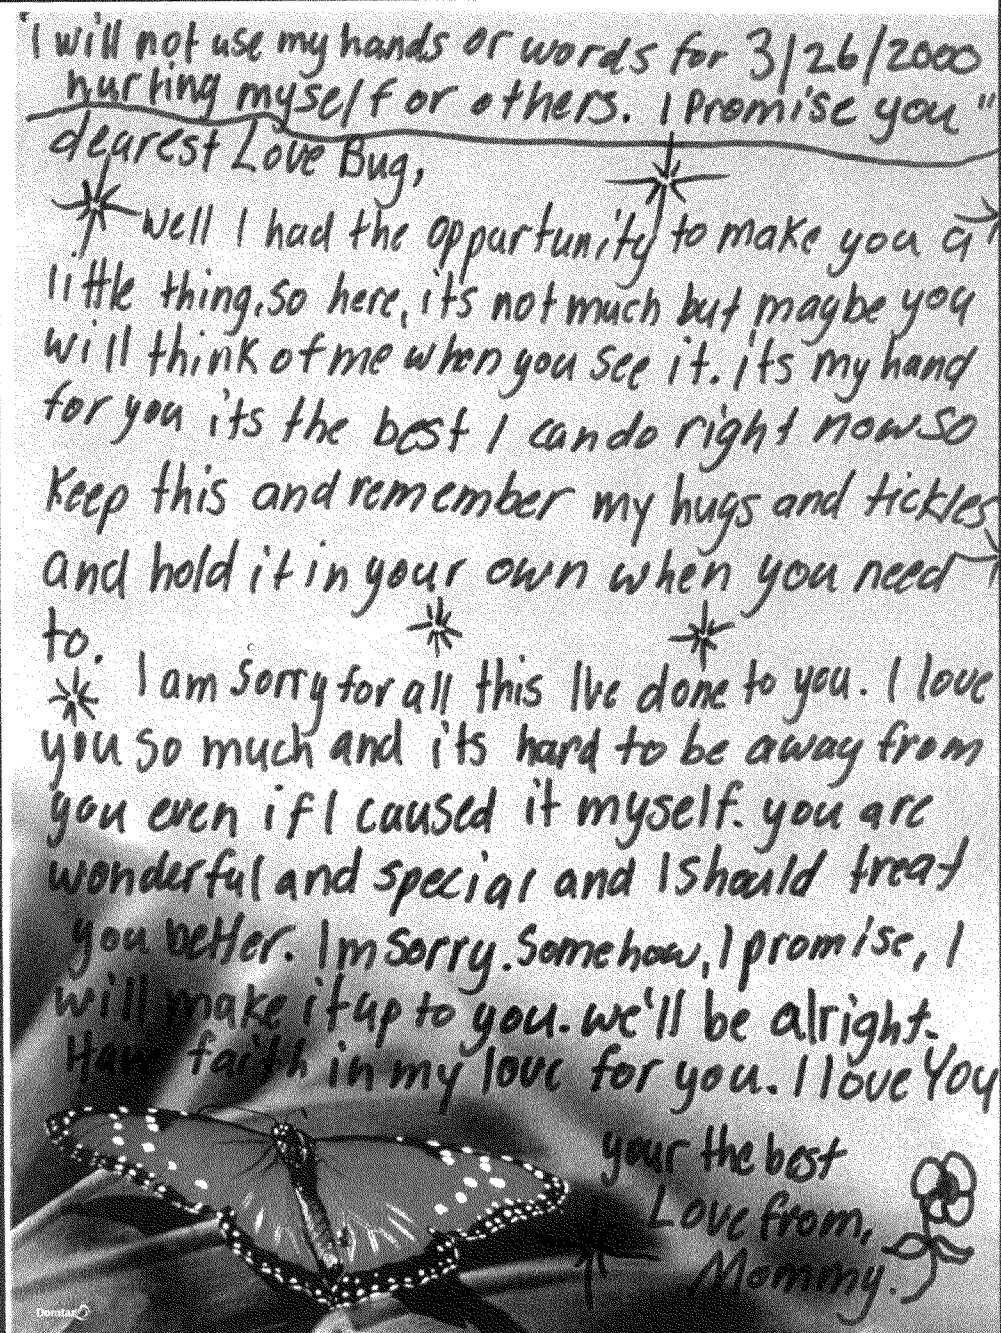 "I will not use my hands or words for 3/26/2000
hurting myself or others. I Promise you"
dearest Love Bug,
Well I had the oppurtunity to make you a
little thing, so here, it's not much but maybe you
will think of me when you see it. its my hand
for you its the best I can do right now so
Keep this and remember my hugs and tickles
and hold it in your own when you need
to.
I am Sorry for all this Ive done to you. I love
you so much and it's hard to be away from
you even if I caused it myself. you are
wonderful and special and I should treat
you better. Im sorry. Somehow, I promise, I
will make it up to you. we'll be alright.
Have faith in my love for you. I love You
your the best
Love from,
Mommy.
Domtar